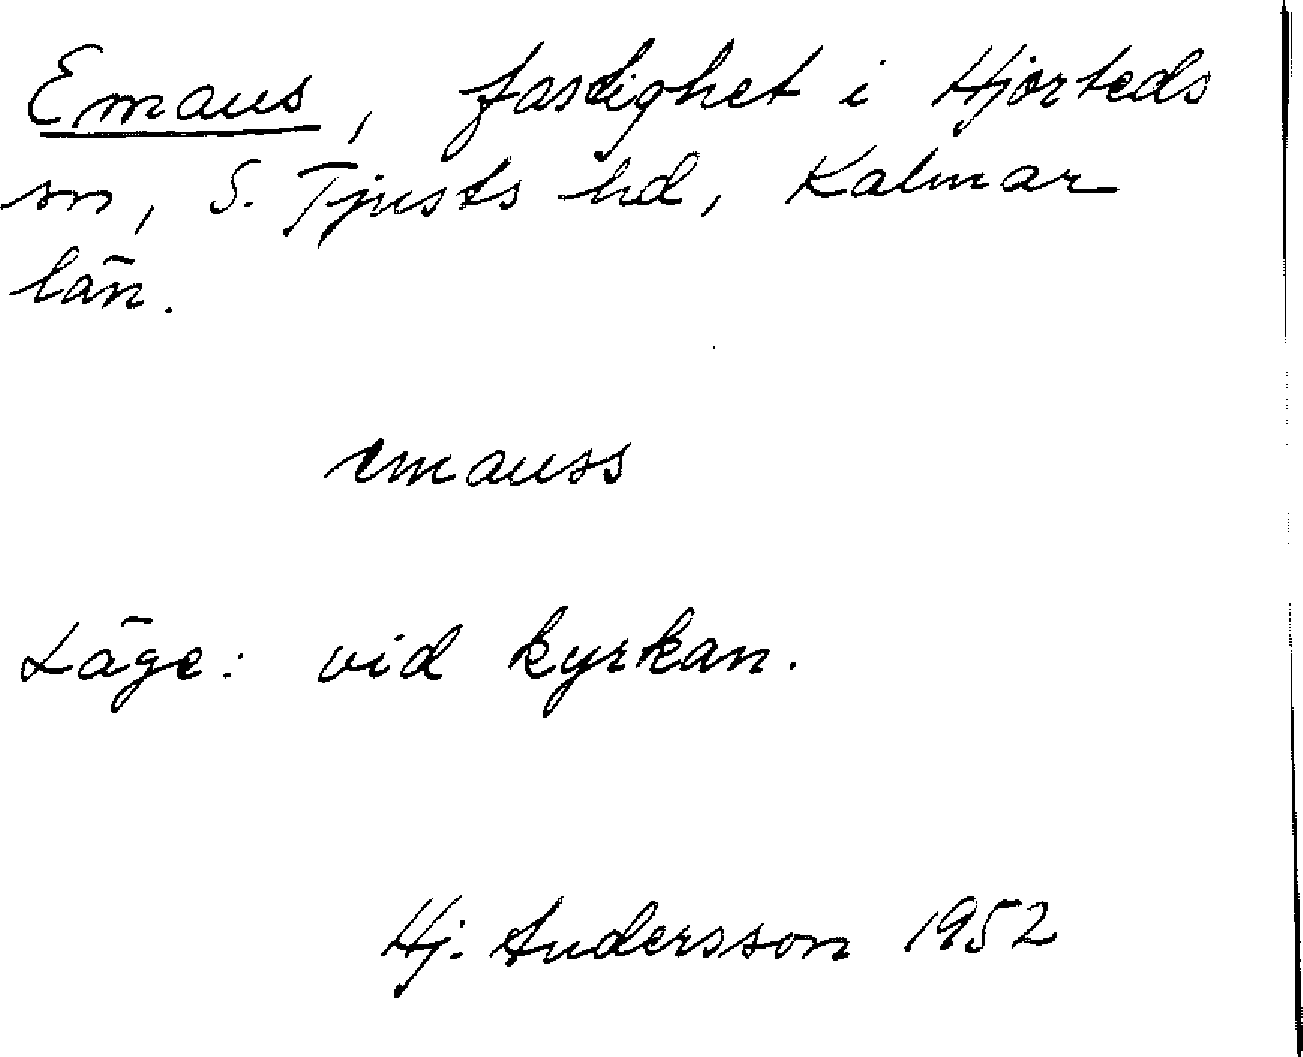 Emaus, fastighet i Hjorteds
sn, S. Tjusts hd, Kalmar
län.
emauss
Läge: vid kyrkan.
Hj. Andersson 1952